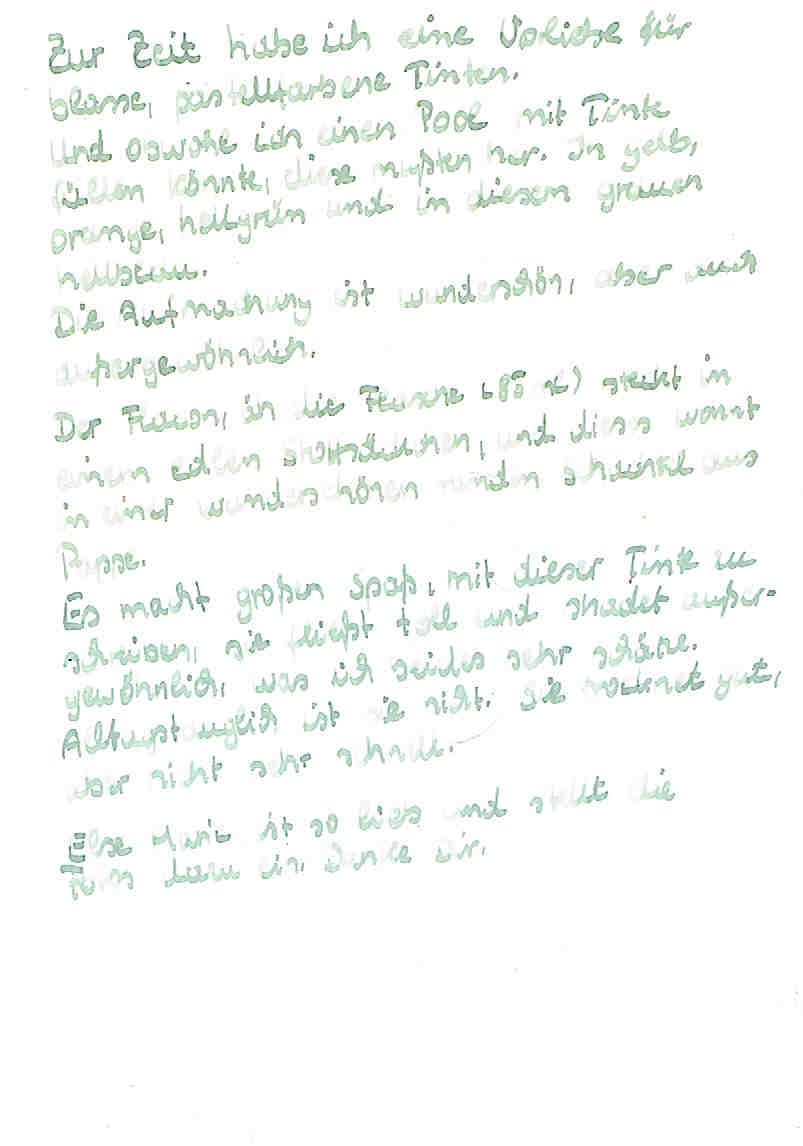 Zur Zeit habe ich eine Vorliebe für
blasse, pastellfarbene Tinten.
Und obwohl ich einen Pool mit Tinte
füllen könnte, diese mußten her. In gelb,
orange, hellgrün und in diesem
hellblau.
Die Aufmachung ist wunderschön, aber auch
außergewöhnlich.
Der Flacon, in die Flasche (85 ) steckt in
einem edlen, und dieses wohnt
in einer wunderschönen runden Schachtel aus
Pappe.
Es macht großen Spaß, mit dieser Tinte zu
schreiben, sie fließt toll und shadet außer-
gewöhnlich, was ich beides sehr schätze.
Alltagstauglich ist sie nicht. Sie trocknet gut,
aber nicht sehr schnell.
Else Marie ist so lieb und stellt die
dazu ein. Danke Dir.